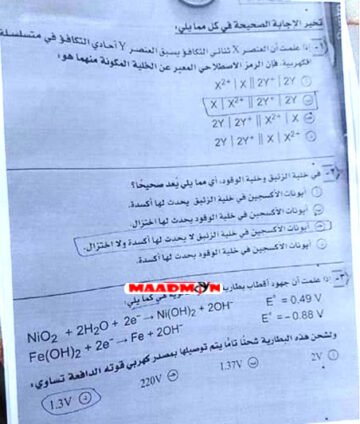 تخير الإجابة الصحيحة في كل مما يلي:
١- إذا علمت أن العنصر X ثنائي التكافؤ يسبق العنصر Y أحادي التكافؤ في متسلسلة
الكهربية، فإن الرمز الاصطلاحي المعبر عن الخلية المكونة منهما هو:
X²⁺ | X || 2Y⁺ | 2Y
X | X²⁺ || 2Y⁺ | 2Y
2Y | 2Y⁺ || X²⁺ | X
2Y | 2Y⁺ || X | X²⁺
٢- في خلية الزئبق وخلية الوقود، أي مما يلي يُعد صحيحًا؟
أيونات الأكسجين في خلية الزئبق يحدث لها أكسدة.
أيونات الأكسجين في خلية الوقود يحدث لها اختزال.
أيونات الأكسجين في خلية الزئبق لا يحدث لها أكسدة ولا اختزال.
أيونات الأكسجين في خلية الوقود يحدث لها أكسدة.
MAADMOYN
٣- إذا علمت أن جهود أقطاب بطارية كما يلي:
NiO₂ + 2H₂O + 2e⁻ → Ni(OH)₂ + 2OH⁻ E° = 0.49 V
Fe(OH)₂ + 2e⁻ → Fe + 2OH⁻ E° = − 0.88 V
ولشحن هذه البطارية شحنًا تامًا يتم توصيلها بمصدر كهربي قوته الدافعة تساوي:
2V
1.37V
220V
1.3V